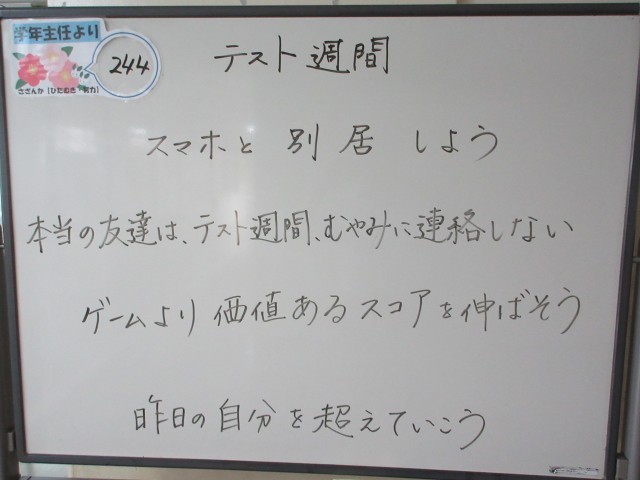 学年主任より
244
さざんか「ひたむき 努力」
テスト週間
スマホと別居しよう
本当の友達は、テスト週間、むやみに連絡しない
ゲームより価値あるスコアを伸ばそう
昨日の自分を超えていこう